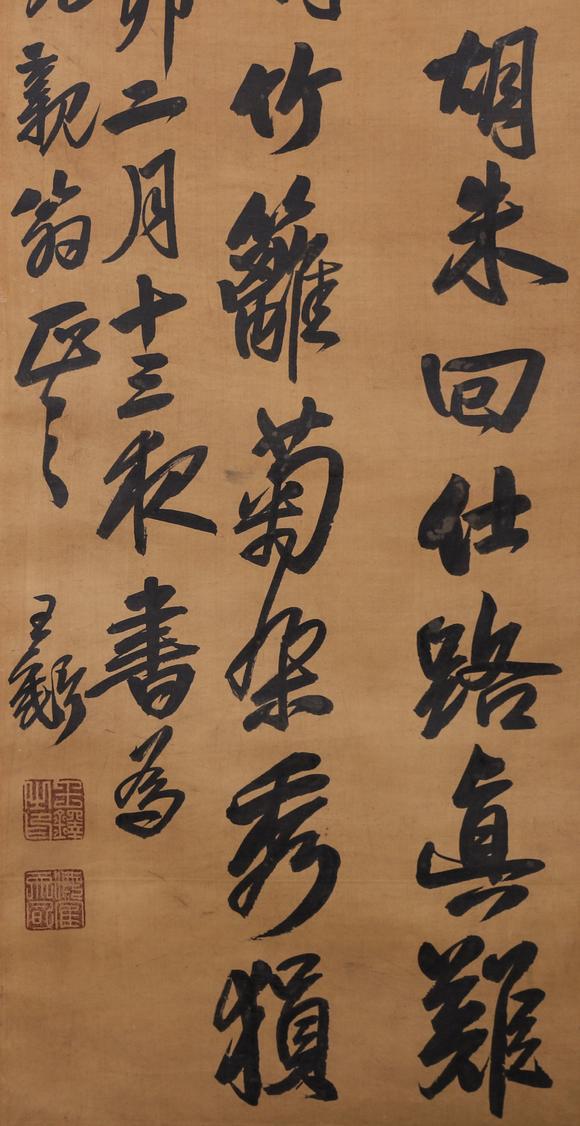 胡朱回仕路真難
竹籬菊朵秀
卯二月十三夜書為
親翁正之
王鐸
王鐸之印